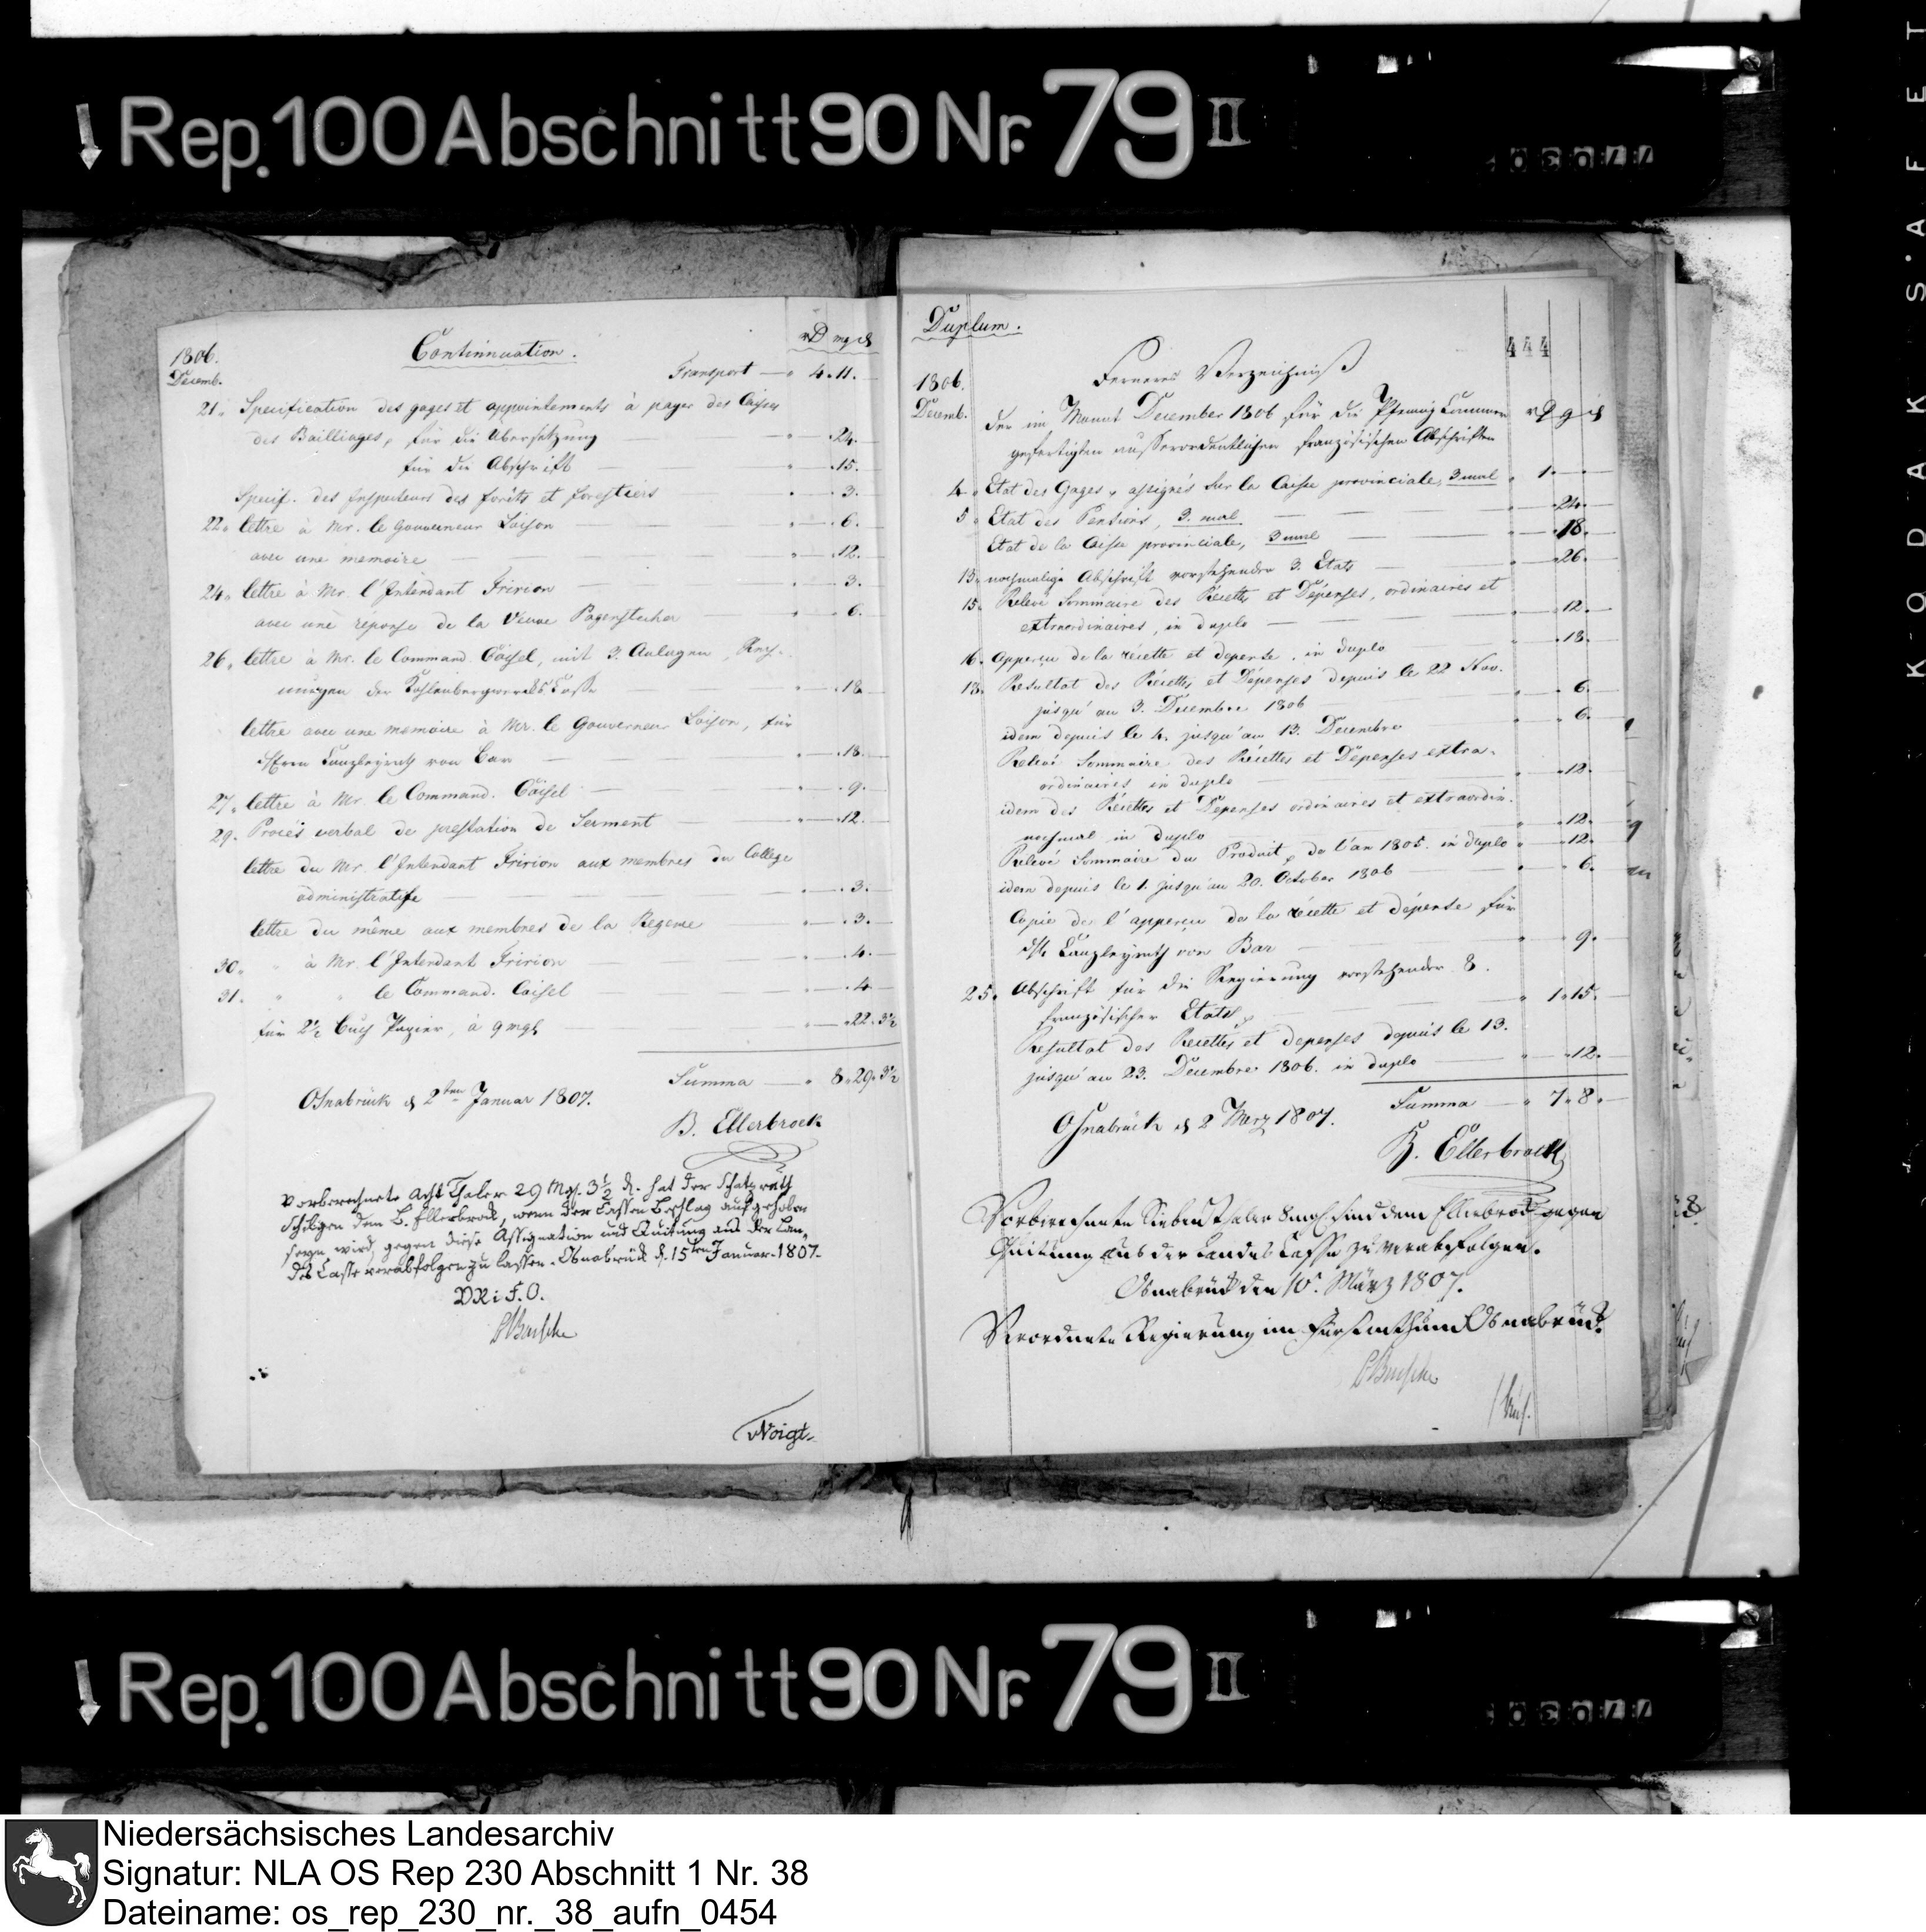 Rep. 100 Abschnitt 90 Nr. 79 II
77030
KODAK SAFET
Continuation.
1806.
Decemb.
Transport — 4. 11.
21. Specification des gages et appointements à payer des Caisses
des Bailliages, für die Übersetzung — 24.
für die Abschrift — 15.
Specif. des Inspecteurs des forêts et forestiers — 3.
22. lettre à Mr. le Gouverneur Loison — 6.
avec une memoire — 12.
24. lettre à Mr. l'Intendant Fririon — 3.
avec une reponse de la Veuve Pagenstecher — 6.
26. lettre à Mr. le Command. Coisel, mit 3. Anlagen, Rech-
nungen der Kohlenbergwercks Casse — 18.
lettre avec une memoire à Mr. le Gouverneur Loison, für
Herrn Canzleyrath von Bar — 18.
27. lettre à Mr. le Command. Coisel — 9.
29. Procès verbal de prestation de Serment — 12.
lettre du Mr. l'Intendant Fririon aux membres du College
administratife — 3.
lettre du même aux membres de la Regence — 3.
30. " à Mr. l'Intendant Fririon — 4.
31. " " le Command. Coisel — 4.
für 2½ Buch Papier, à 9 mgl — 22. 3½
Summa — 8. 29. 3½
Osnabrück d 2ten Januar 1807.
B. Ellerbrock
Vorberechnete Acht Thaler 29 Mgr. 3½ d. hat der Schatzrath
Schilgen dem B. Ellerbrock, wenn der Cassen Beschlag aufgehoben
seyn wird, gegen diese Assignation und Quitung aus der Lan-
des Casse verabfolgen zu lassen. Osnabrück d. 15ten Januar. 1807.
V R i F. O.
Busche
Voigt.
Duplum.
444
1806.
Decemb.
Ferneres Verzeichniß
der im Monat December 1806 für die Pfennig Cammer
gefertigten ausserordentlichen französischen Abschriften
4. Etat des Gages, assignés sur la Caisse provinciale, 3 mal — 1.
5. Etat des Pensions, 3. mal — 24.
Etat de la Caisse provinciale, 3 mal — 18.
13. nochmalige Abschrift vorstehender 3. Etats — 26.
15. Relevé Sommaire des Récettes et Dépenses, ordinaires et
extraordinaires, in duplo — 12.
16. Apperçu de la récette et depense, in duplo — 18.
18. Resultat des Récettes et Dépenses depuis le 22 Nov.
jusqu'au 3. Decembre 1806 — 6.
idem depuis le 4. jusqu'au 13. Decembre — 6.
Relevé Sommaire des Récettes et Dépenses extra-
ordinaires in duplo — 12.
idem des Récettes et Dépenses ordinaires et extraordin.
nochmal in duplo — 12.
Relevé Sommaire du Produit, de l'an 1805. in duplo — 12.
idem depuis le 1. jusqu'au 20. October 1806 — 6.
Copie de l'apperçu de la récette et dépense für
Canzleyrath von Bar — 9.
25. Abschrift für die Regierung vorstehender 8.
französischer Etats — 1. 15.
Resultat des Recettes et depenses depuis le 13.
jusqu'au 23. Decembre 1806. in duplo — 12.
Summa — 7. 8.
Osnabrück d 2 Merz 1807.
B. Ellerbrock
Vorberechnete Sieben Thaler 8 mgl. sind dem Ellerbrock gegen
Quitung aus der Landes Casse zu verabfolgen.
Osnabrück den 10. März 1807.
Verordnete Regierung im Fürstenthum Osnabrück.
Busche
Rep. 100 Abschnitt 90 Nr. 79 II
77030
Niedersächsisches Landesarchiv
Signatur: NLA OS Rep 230 Abschnitt 1 Nr. 38
Dateiname: os_rep_230_nr._38_aufn_0454